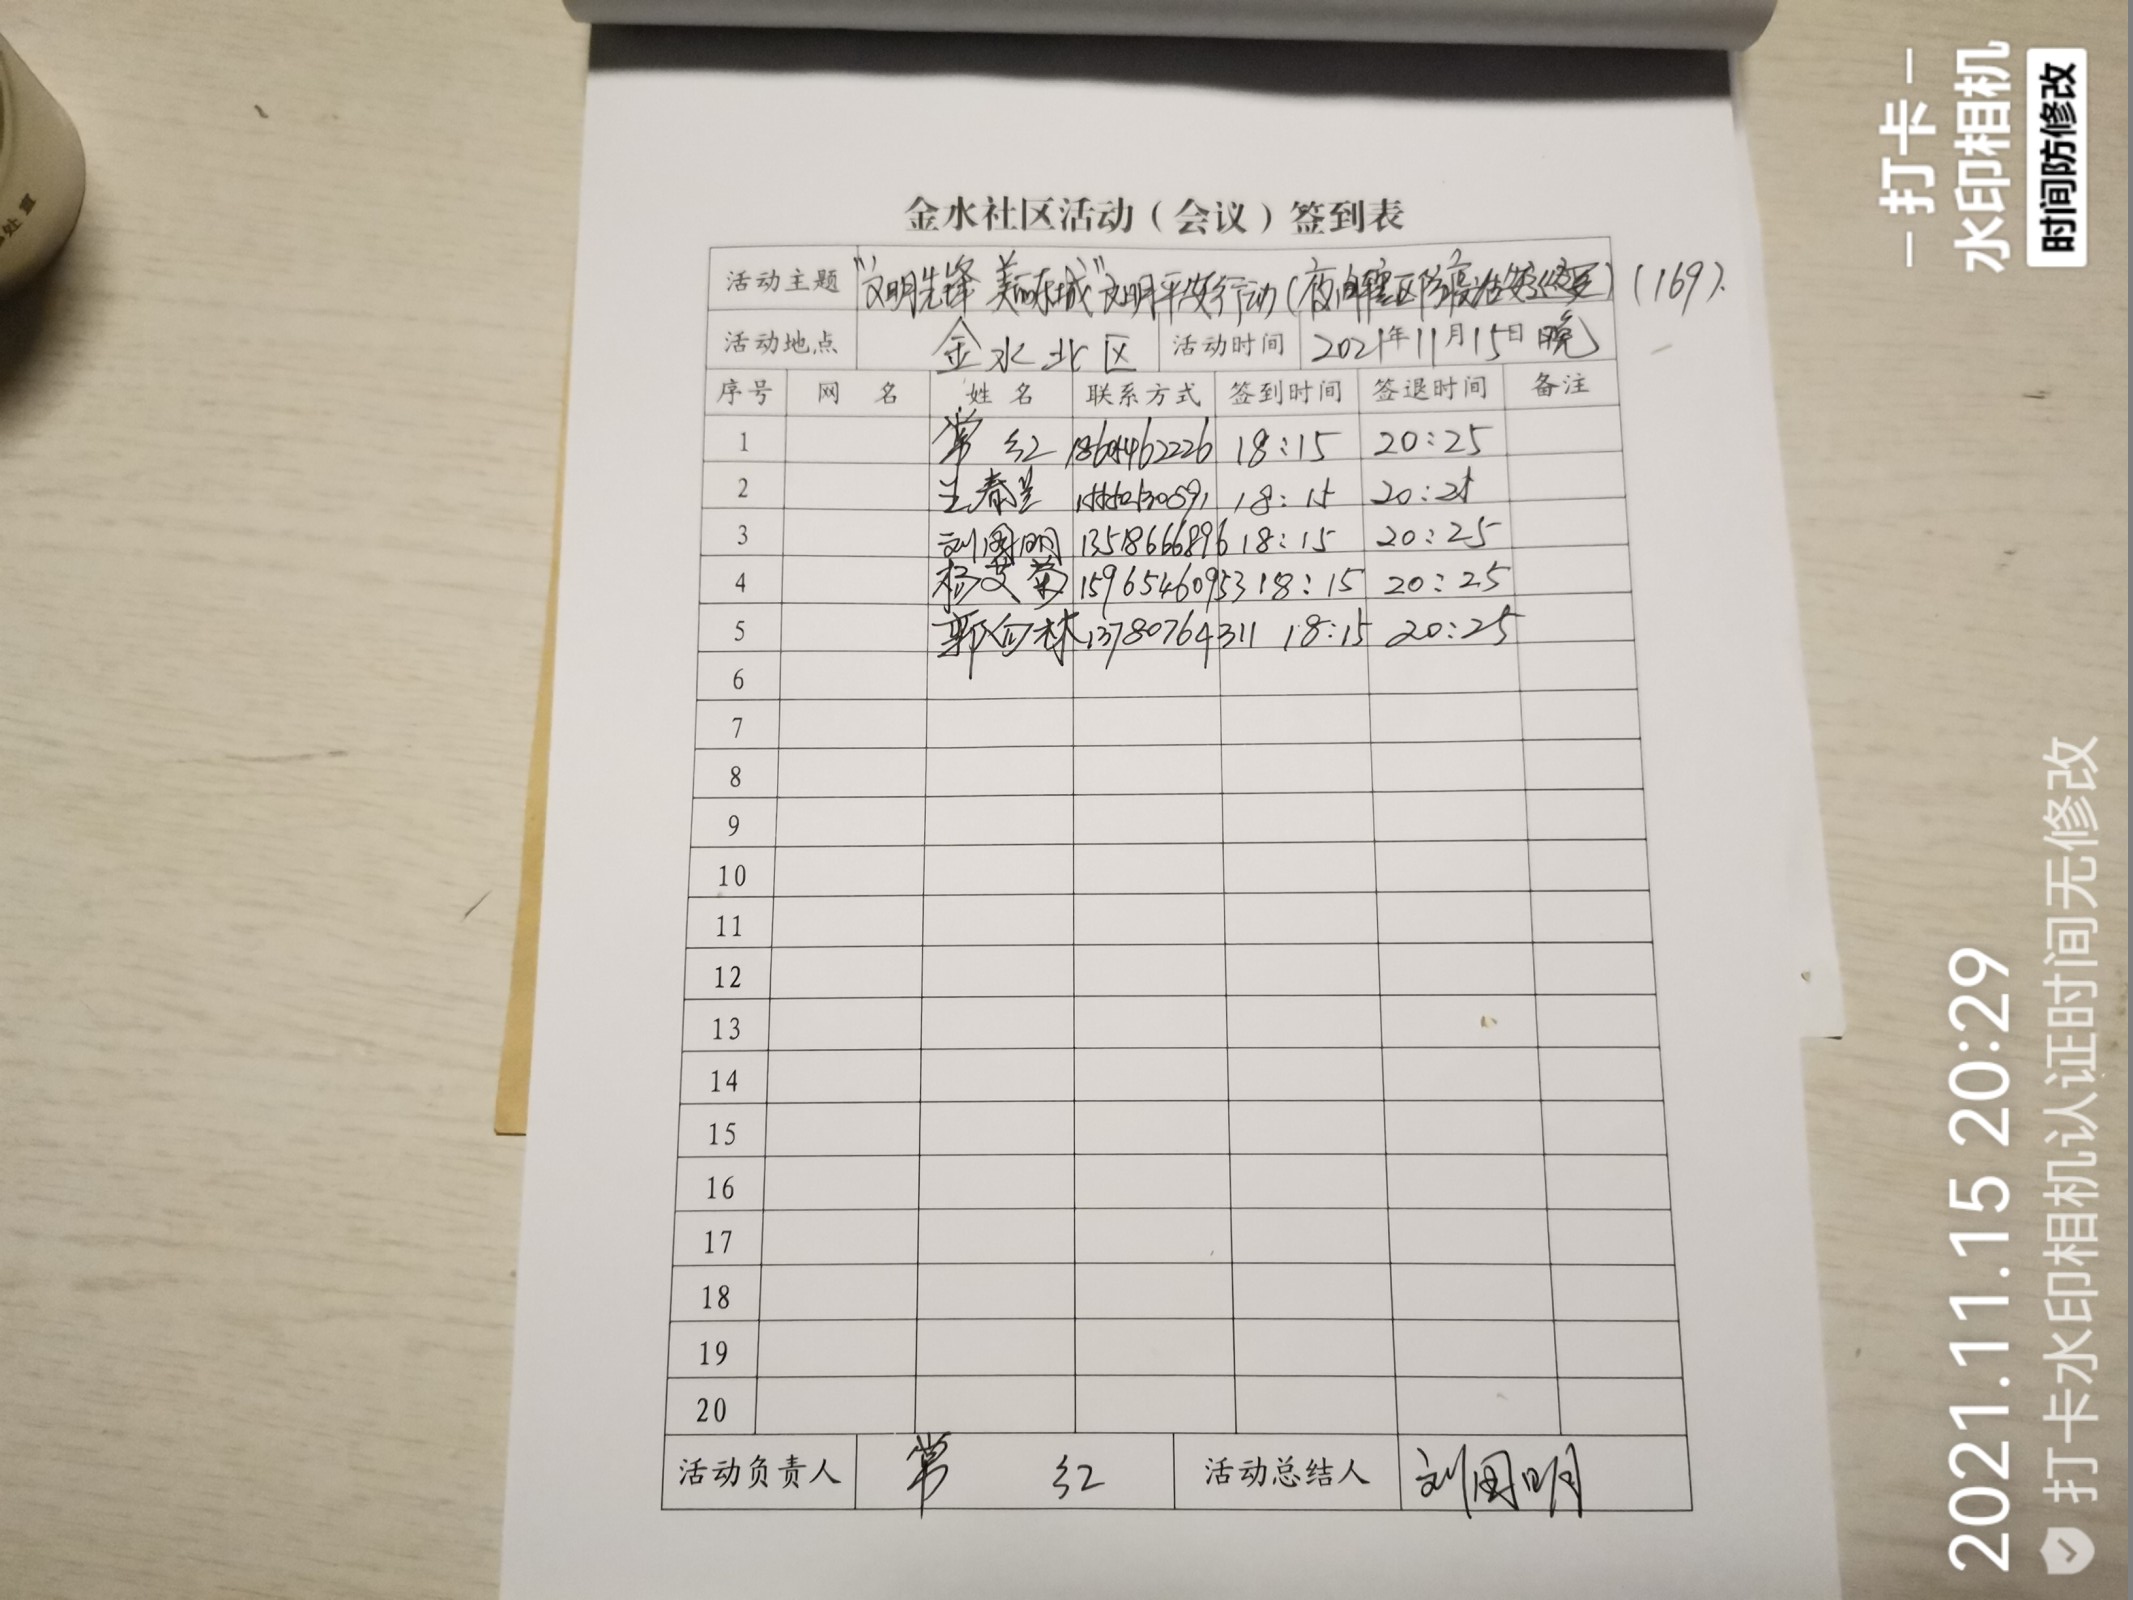 金水社区活动（会议）签到表
活动主题 "文明先锋 美丽东城"文明平安行动(夜间辖区防疫治安巡逻)(169).
活动地点 金水北区 活动时间 2021年11月15日晚
序号 网 名 姓 名 联系方式 签到时间 签退时间 备注
1 常 红 18:15 20:25
2 王春兰 18:15 20:25
3 刘国明 13518666896 18:15 20:25
4 杨艾菊 15965460953 18:15 20:25
5 郭 林 13780764311 18:15 20:25
6
7
8
9
10
11
12
13
14
15
16
17
18
19
20
活动负责人 常 红 活动总结人 刘国明
打卡
水印相机
时间防修改
2021.11.15 20:29
打卡水印相机认证时间无修改